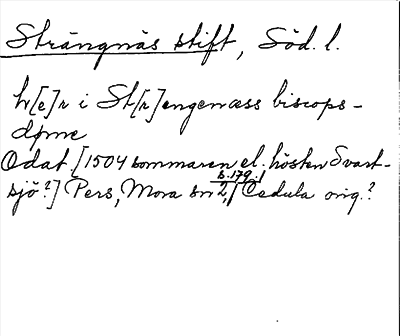 Strängnäs stift, Söd. l.
h[e]r i St[r]engenæss biscops-
døme
Odat [1504 sommaren el. hösten Svart-
s. 179.
sjö?] Pers, Mora brr 2, Cedula orig.?